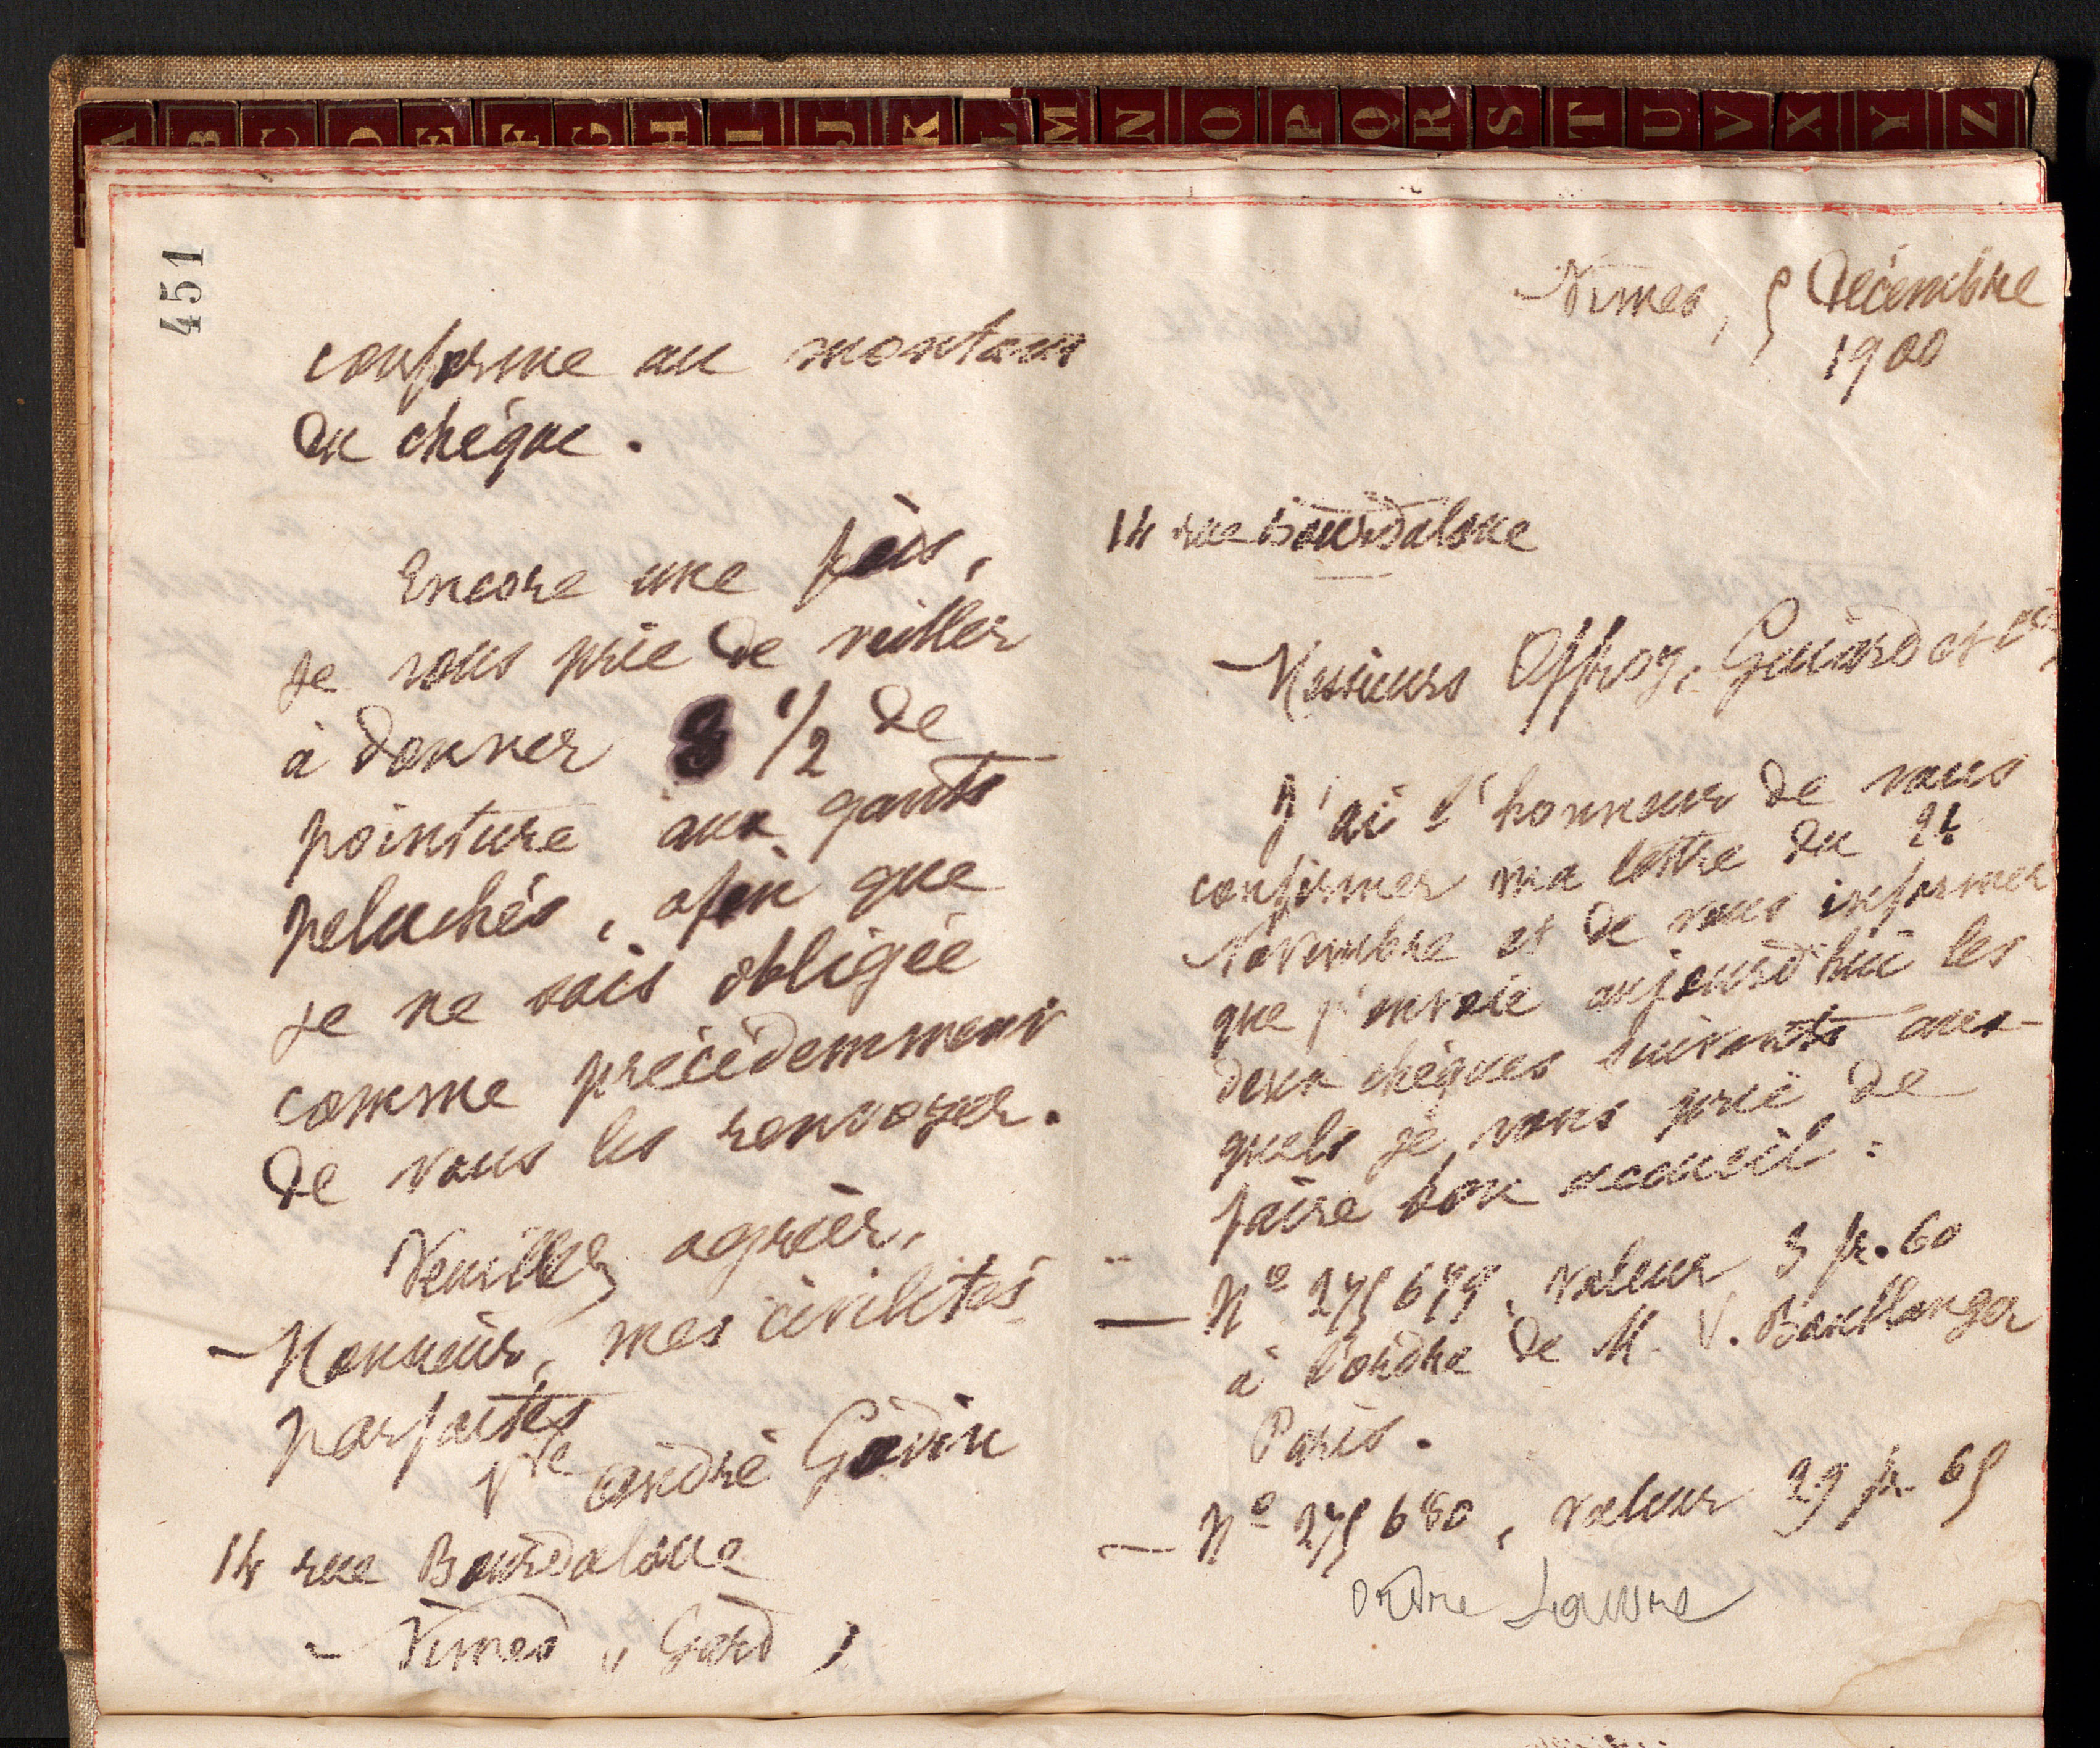 A B C D E F G H I J K L M N O P Q R S T U V X Y Z
451
conforme au montant
du chèque.
Encore une fois,
je vous prie de veiller
à donner 8 1/2 de
pointure aux gants
peluchés, afin que
je ne sois obligée
comme précédemment
de vous les renvoyer.
Veuillez agréer,
Monsieur, mes civilités
parfaites
Vve André Godin
14 rue Bourdaloue
Nîmes (Gard)
Nîmes, 5 Décembre
1900
14 rue Bourdaloue
Messieurs Offroy, Guiard et Cie,
J'ai l'honneur de vous
confirmer ma lettre du 24
Novembre et de vous informer
que j'envoie aujourd'hui les
deux chèques suivants aux-
quels je vous prie de
faire bon accueil :
— No 275679, valeur 3 fr. 60
à l'ordre de M. V. Boullanger
Paris.
— No 275680, valeur 29 fr. 65
ordre Louvre